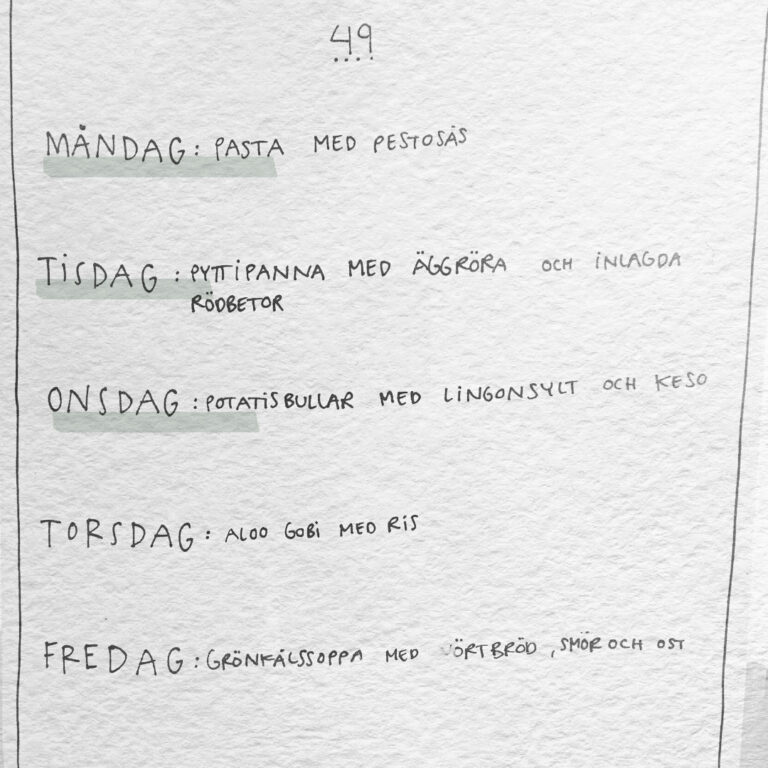 49
MÅNDAG: PASTA MED PESTOSÅS
TISDAG: PYTTIPANNA MED ÄGGRÖRA OCH INLAGDA
RÖDBETOR
ONSDAG: POTATISBULLAR MED LINGONSYLT OCH KESO
TORSDAG: ALOO GOBI MED RIS
FREDAG: GRÖNKÅLSSOPPA MED VÖRTBRÖD, SMÖR OCH OST